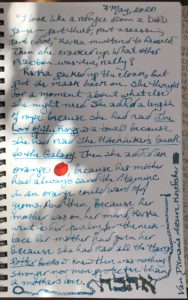 7 May, 2020
"I look like a refugee from a D&D
game - part thief, part assassin,
part idiot," Rivka muttered to herself.
Then she cracked up. What other
reaction was there, really?
Rivka packed up the cloak, but
put the mask back on. She thought
for a moment about what else
she might need. She added a length
of rope because she had read The
Lord of the Rings & a towel because she
had read The Hitchhiker's Guide
to the Galaxy. Then she added an
orange because her mother
had always said the vitamin C
in an orange could ward off
germs. And then, because her
mother was on her mind, Rivka
went
her mother had
because she had read all the Harry
Potter books & knew there was nothing
stronger nor more protective than
a mother's love.
אהבה